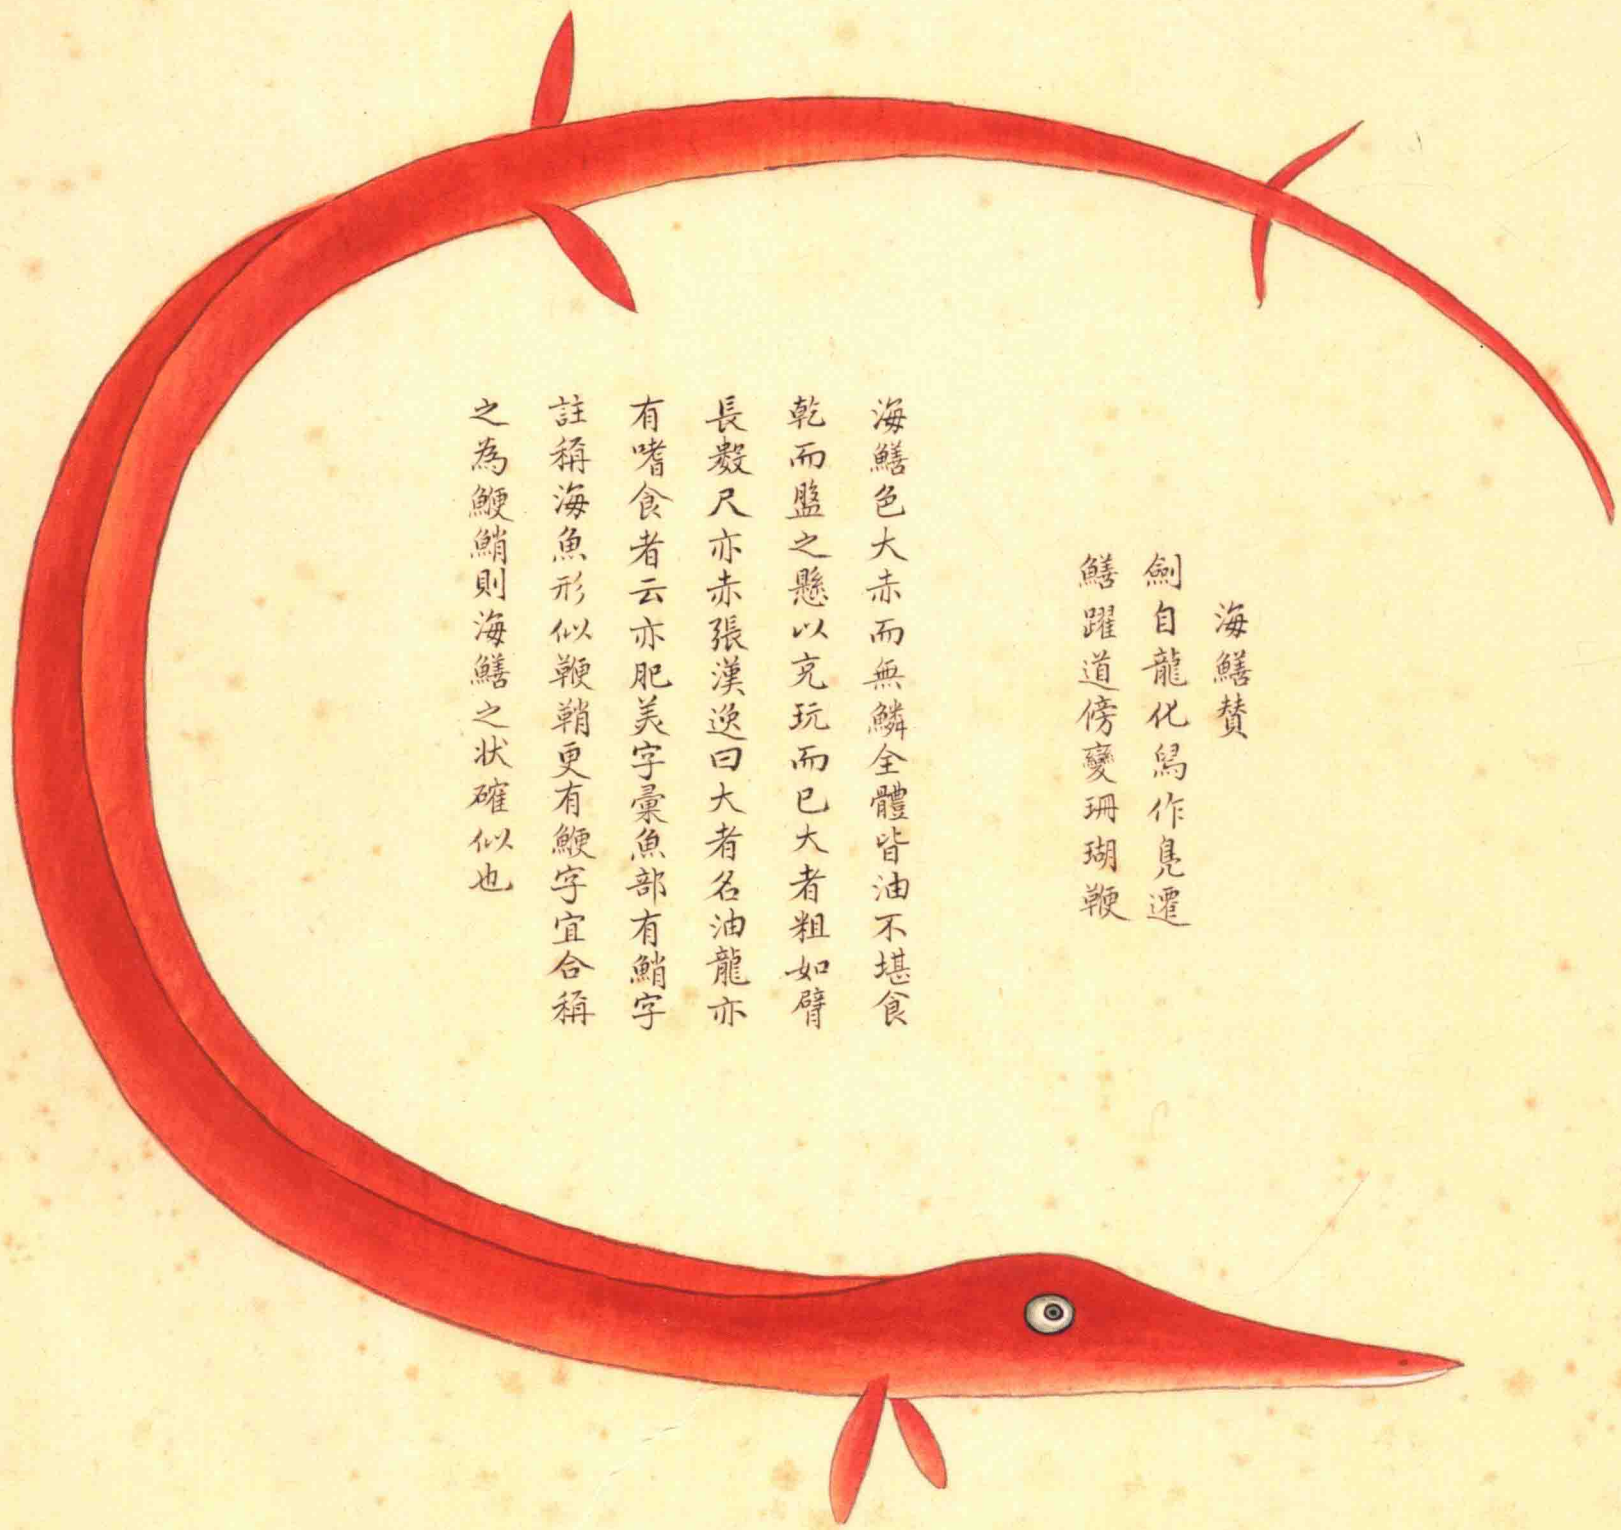 海鱔賛
劍自龍化舄作鳧遷
鱔躍道傍變珊瑚鞭
海鱔色大赤而無鱗全體皆油不堪食
乾而盬之懸以充玩而已大者粗如臂
長數尺亦赤張漢逸曰大者名油龍亦
有嗜食者云亦肥美字彙魚部有鮹字
註稱海魚形似鞭鞘更有鯾字宜合稱
之為鯾鮹則海鱔之状確似也